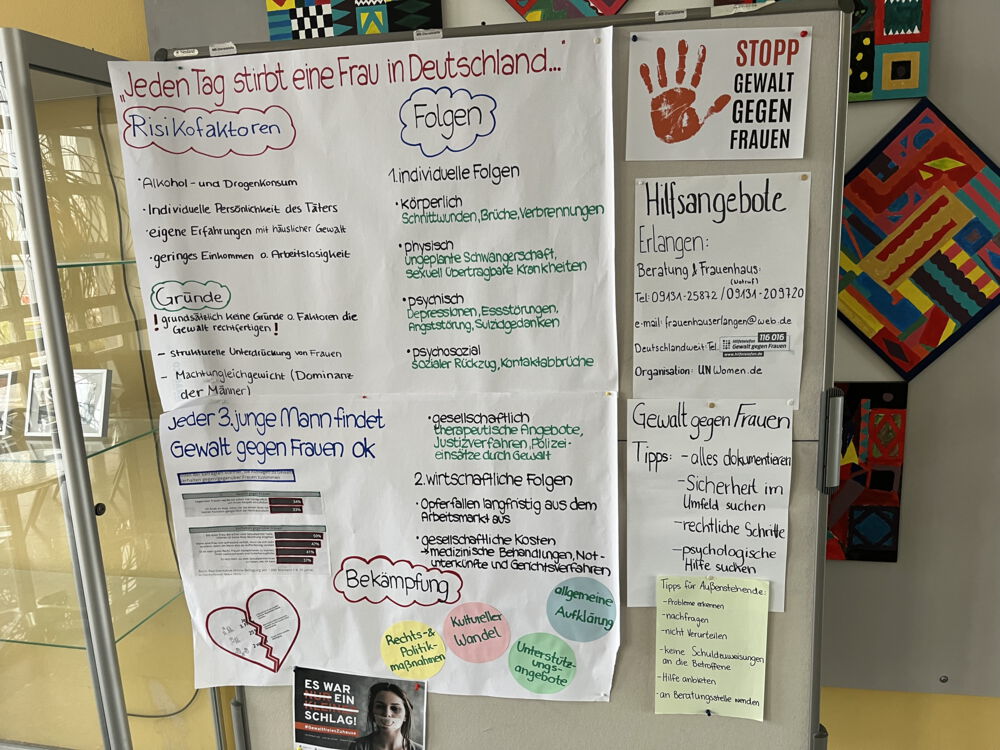 „Jeden Tag stirbt eine Frau in Deutschland..."
Risikofaktoren
• Alkohol- und Drogenkonsum
• Individuelle Persönlichkeit des Täters
• eigene Erfahrungen mit häuslicher Gewalt
• geringes Einkommen o. Arbeitslosigkeit
Gründe
! grundsätlich keine Gründe o. Faktoren die
Gewalt rechtfertigen !
– strukturelle Unterdrückung von Frauen
– Machtungleichgewicht (Dominanz
der Männer)
Jeder 3. junge Mann findet
Gewalt gegen Frauen ok
Folgen
1. individuelle Folgen
• körperlich
Schnittwunden, Brüche, Verbrennungen
• physisch
ungeplante Schwangerschaft,
sexuell übertragbare Krankheiten
• psychisch
Depressionen, Essstörungen,
Angststörung, Suizidgedanken
• psychosozial
sozialer Rückzug, Kontaktabbrüche
• gesellschaftlich
therapeutische Angebote,
Justizverfahren, Polizei-
einsätze durch Gewalt
2. wirtschaftliche Folgen
• Opferfallen langfristig aus dem
Arbeitsmarkt aus
• gesellschaftliche Kosten
→ medizinische Behandlungen, Not-
unterkünfte und Gerichtsverfahren
Bekämpfung
Rechts- &
Politik-
maßnahmen
Kultureller
Wandel
Unterstütz-
ungs-
angebote
allgemeine
Aufklärung
ES WAR
NUR EIN
KLEINER
SCHLAG!
#GewaltfreiesZuhause
STOPP
GEWALT
GEGEN
FRAUEN
Hilfsangebote
Erlangen:
Beratung & Frauenhaus:
(Notruf)
Tel: 09131-25872 / 09131-209720
e-mail: frauenhauserlangen@web.de
Deutschlandweit: Tel: Hilfetelefon 116 016
Gewalt gegen Frauen
www.hilfetelefon.de
Organisation: UN Women.de
Gewalt gegen Frauen
Tipps: - alles dokumentieren
- Sicherheit im
Umfeld suchen
- rechtliche Schritte
- psychologische
Hilfe suchen
Tipps für Außenstehende:
- Probleme erkennen
- nachfragen
- nicht Verurteilen
- keine Schuldzuweisungen
an die Betroffene
- Hilfe anbieten
- an Beratungsstelle wenden